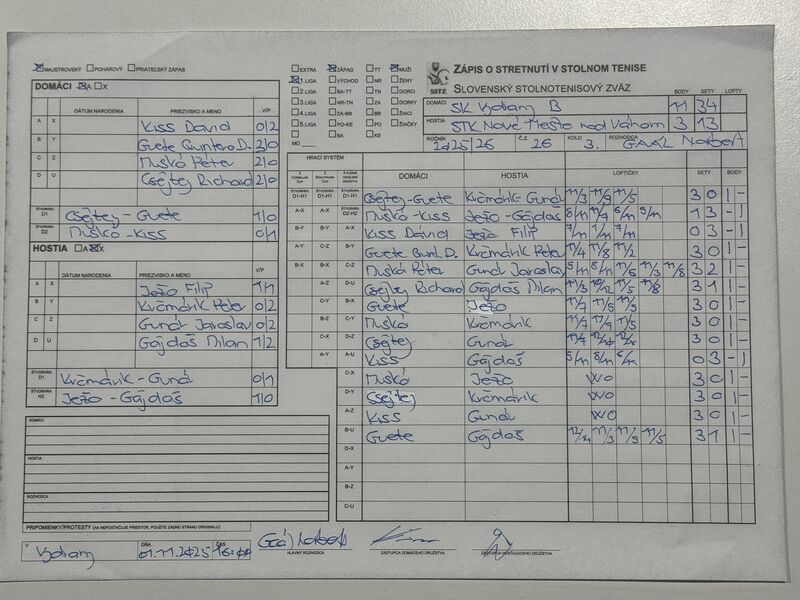 MAJSTROVSKÝ POHÁROVÝ PRIATEĽSKÝ ZÁPAS
DOMÁCI A X
DÁTUM NARODENIA PRIEZVISKO A MENO V/P
A X Kiss Dávid 0/2
B Y Guete Quintero D. 3/0
C Z Muskó Péter 2/0
D U Csejtey Richard 2/0
ŠTVORHRA D1 Csejtey - Guete 1/0
ŠTVORHRA D2 Muskó - Kiss 0/1
HOSTIA A X
DÁTUM NARODENIA PRIEZVISKO A MENO V/P
A X Ježo Filip 1/1
B Y Krčmárik Peter 0/2
C Z Gunár Jaroslav 0/2
D U Gájdoš Milan 1/2
ŠTVORHRA D1 Krčmárik - Gunár 0/1
ŠTVORHRA H2 Ježo - Gájdoš 1/0
DOMÁCI
HOSTIA
ROZHODCA
PRIPOMIENKY/PROTESTY (AK NEPOSTAČUJE PRIESTOR, POUŽITE ZADNÚ STRANU ORIGINÁLU)
EXTRA ZÁPAD TT MUŽI
1. LIGA VÝCHOD NR ŽENY
2. LIGA BA-TT TN DORCI
3. LIGA NR-TN ZA DORKY
4. LIGA ZA-BB BB ŽIACI
5. LIGA PO-KE PO ŽIAČKY
BA KE
MO
SSTZ
ZÁPIS O STRETNUTÍ V STOLNOM TENISE
SLOVENSKÝ STOLNOTENISOVÝ ZVÄZ
BODY SETY LOPTY
DOMÁCI SK Vydrany B 11 34
HOSTIA STK Nové Mesto nad Váhom 3 13
ROČNÍK 2025/26 Č.Z. 26 KOLO 3. ROZHODCA GAÁL Norbert
HRACÍ SYSTÉM
DOMÁCI HOSTIA LOPTIČKY SETY BODY
D1-H1 D1-H1 D1-H1 Csejtey-Guete Krčmárik Gunár 11/3 11/9 11/5 3 0 1 -
A-X A-X D2-H2 Muskó - Kiss Ježo - Gájdoš 8/11 11/7 6/11 9/11 1 3 - 1
B-Y B-Y A-X Kiss Dávid Ježo Filip 7/11 1/11 7/11 0 3 - 1
A-Y C-Z B-Y Guete Quint. D. Krčmárik Peter 11/4 11/8 11/2 3 0 1 -
B-X B-X C-Z Muskó Péter Gunár Jaroslav 9/11 8/11 11/6 11/3 11/8 3 2 1 -
A-Z D-U Csejtey Richard Gájdoš Milan 11/3 10/12 11/5 11/8 3 1 1 -
C-Y B-X Guete Ježo 11/7 11/5 11/5 3 0 1 -
B-Z C-Y Muskó Krčmárik 11/7 11/7 11/5 3 0 1 -
C-X D-Z Csejtey Gunár 3 0 1 -
A-Y A-U Kiss Gájdoš 5/11 8/11 6/11 0 3 - 1
C-X Muskó Ježo WO 3 0 1 -
D-Y Csejtey Krčmárik WO 3 0 1 -
A-Z Kiss Gunár WO 3 0 1 -
B-U Guete Gájdoš 12/14 11/3 11/9 11/5 3 1 1 -
D-X
A-Y
B-Z
C-U
V Vydrany DŇA 01.11.2025 ČAS 16:00
HLAVNÝ ROZHODCA ZÁSTUPCA DOMÁCEHO DRUŽSTVA ZÁSTUPCA HOSŤUJÚCEHO DRUŽSTVA